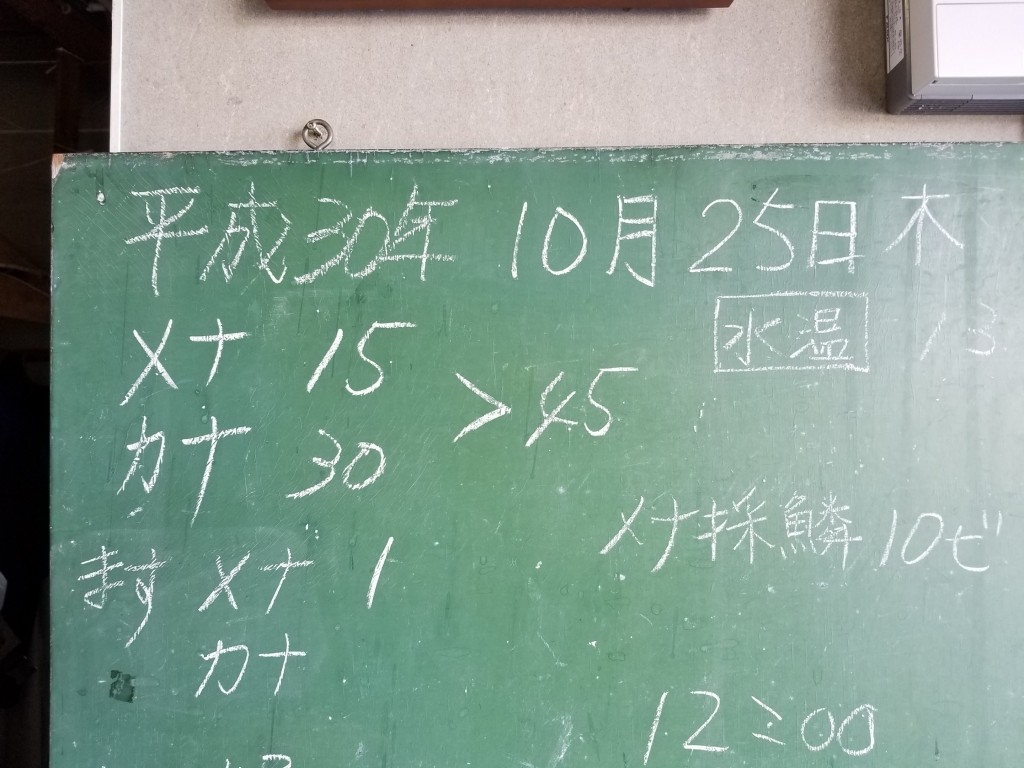 平成30年 10月 25日 木
水温 13
メナ 15
カナ 30
> 45
メナ採鱗 10ピ
ます メナ 1
カナ
12:00